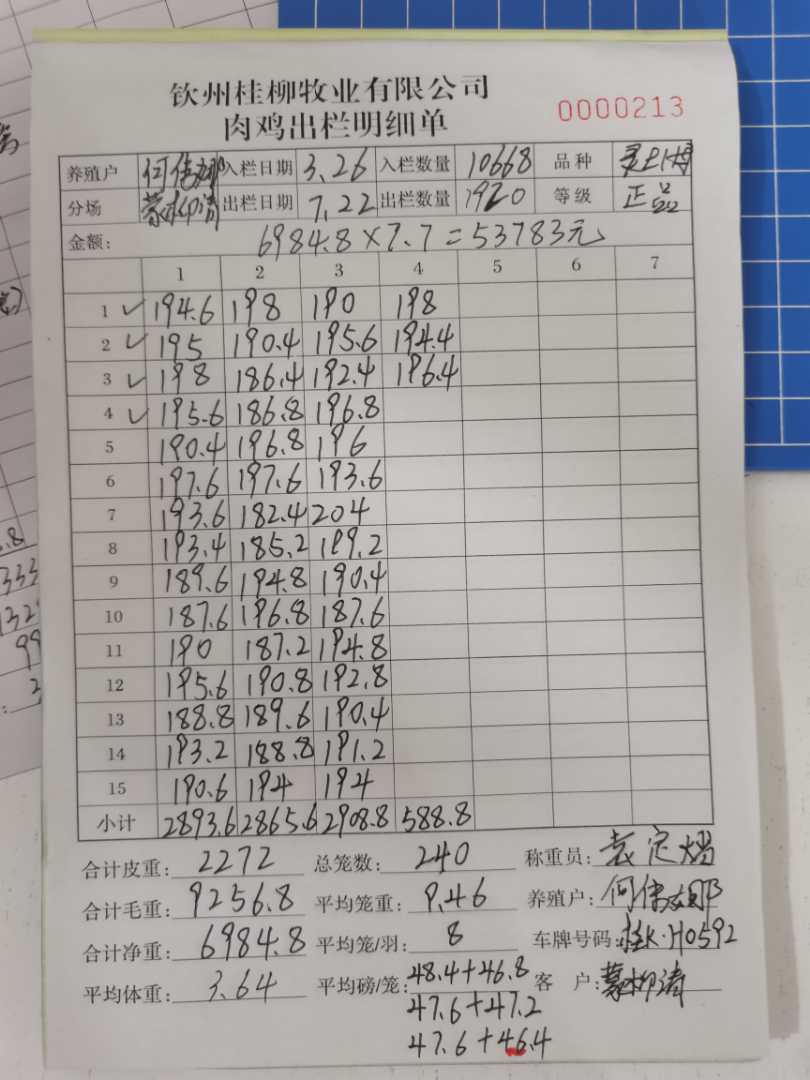 钦州桂柳牧业有限公司
肉鸡出栏明细单
0000213
养殖户 何 入栏日期 3.26 入栏数量 10668 品种
分场 蒙柳涛 出栏日期 7.22 出栏数量 1920 等级 正品
金额: 6984.8×7.7=53783元
1 2 3 4 5 6 7
1 ✓ 194.6 198 190 198
2 ✓ 195 190.4 195.6 194.4
3 ✓ 198 186.4 192.4 196.4
4 ✓ 195.6 186.8 196.8
5 190.4 196.8 196
6 197.6 197.6 193.6
7 193.6 182.4 204
8 193.4 185.2 189.2
9 189.6 194.8 190.4
10 187.6 196.8 187.6
11 190 187.2 194.8
12 195.6 190.8 192.8
13 188.8 189.6 190.4
14 193.2 188.8 191.2
15 190.6 194 194
小计 2893.6 2865.6 2908.8 588.8
合计皮重: 2272 总笼数: 240 称重员: 袁定
合计毛重: 9256.8 平均笼重: 9.46 养殖户: 何
合计净重: 6984.8 平均笼/羽: 8 车牌号码: 桂K·H0592
平均体重: 3.64 平均磅/笼: 48.4+46.8 客 户: 蒙柳涛
47.6+47.2
47.6+46.4